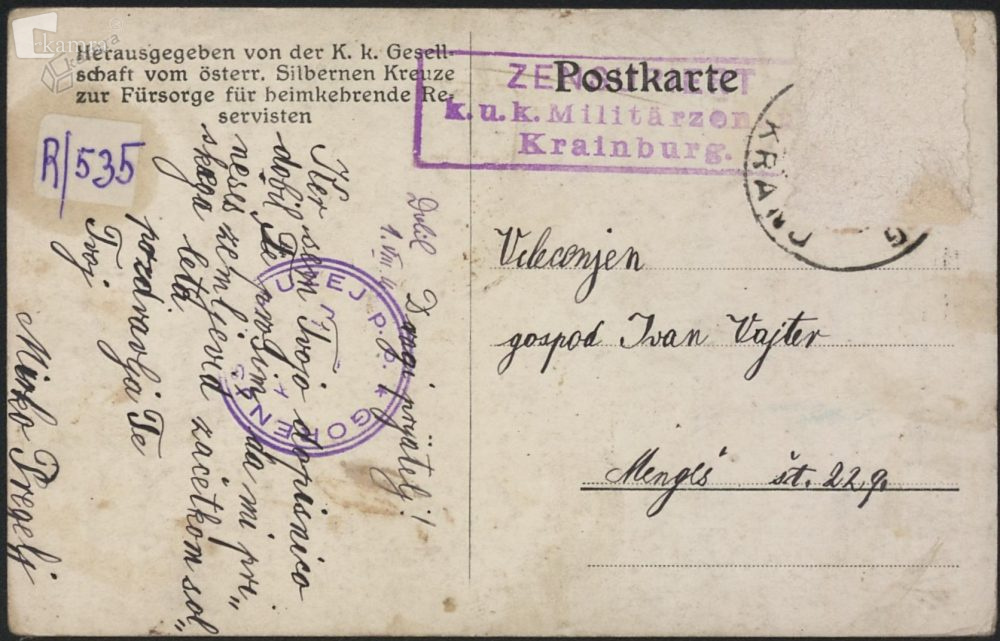 kamra
kamra
Herausgegeben von der K. k. Gesell-
schaft vom österr. Silbernen Kreuze
zur Fürsorge für heimkehrende Re-
servisten
R/535
Postkarte
k.u.k. Militärzen
Krainburg.
KRA
Dobil
1. VIII.
Dragi prijatelj!
Ker sem Tvojo dopisnico
dobil Te prosim, da mi pri„
neseš zemljevid začetkom šol„
skega leta
pozdravlja Te
Tvoj
Mirko Pregelj
MUZEJ P.O. * GORENJ
Velecenjen
gospod Ivan Vajter
Mengeš št. 22, g.